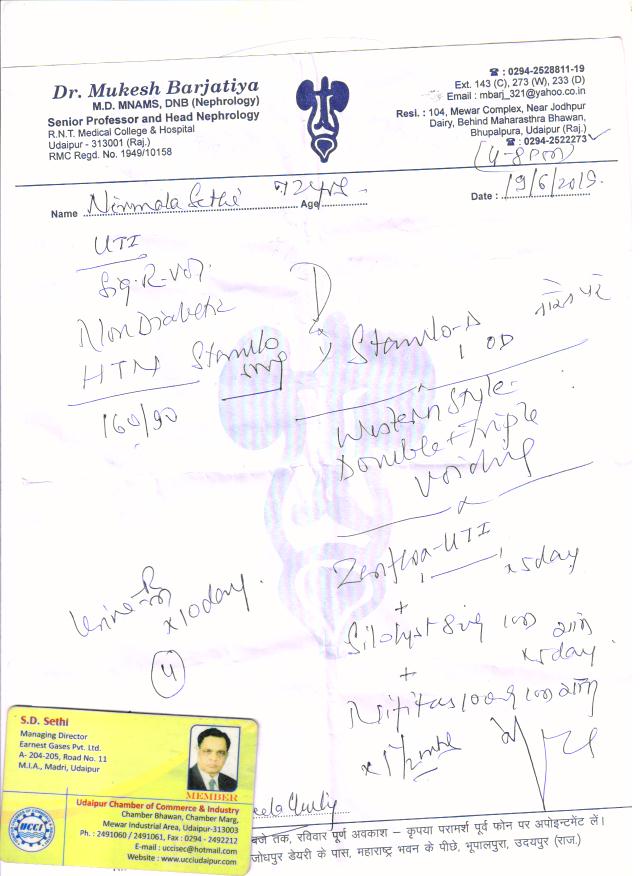 Dr. Mukesh Barjatiya
M.D. MNAMS, DNB (Nephrology)
Senior Professor and Head Nephrology
R.N.T. Medical College & Hospital
Udaipur - 313001 (Raj.)
RMC Regd. No. 1949/10158
☎ : 0294-2528811-19
Ext. 143 (C), 273 (W), 233 (D)
Email : mbarj_321@yahoo.co.in
Resi. : 104, Mewar Complex, Near Jodhpur
Dairy, Behind Maharashtra Bhawan,
Bhupalpura, Udaipur (Raj.)
☎ : 0294-2522273
(4-8pm)
Name Nirmala Sethi Age 72 yrs
Date : 19/6/2019.
UTI
Sig. R-Vol.
Non Diabetic
HTN Stamlo 5mg
160/90
Stamlo-A
1 OD
Western Style
Double + Triple
Voiding
UTI
1 1 x 5day
+
8mg
x 5day
+
Urine-R
x 10day.
4
S.D. Sethi
Managing Director
Earnest Gases Pvt. Ltd.
A- 204-205, Road No. 11
M.I.A., Madri, Udaipur
MEMBER
Udaipur Chamber of Commerce & Industry
Chamber Bhawan, Chamber Marg,
Mewar Industrial Area, Udaipur-313003
Ph. : 2491060 / 2491061, Fax : 0294 - 2492212
E-mail : uccisec@hotmail.com
Website : www.ucciudaipur.com
UCCI
बजे तक, रविवार पूर्ण अवकाश – कृपया परामर्श पूर्व फोन पर अपोइन्टमेंट लें।
जोधपुर डेयरी के पास, महाराष्ट्र भवन के पीछे, भूपालपुरा, उदयपुर (राज.)